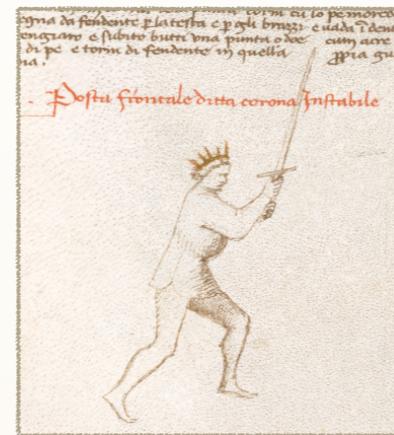 egna da fendente p la testa e p gli brazzi e uada
engiaro e subito butti una punta o doe cum acre
di pe e torni di fendente in quella ppia gu
na.
Posta frontale ditta corona Instabile